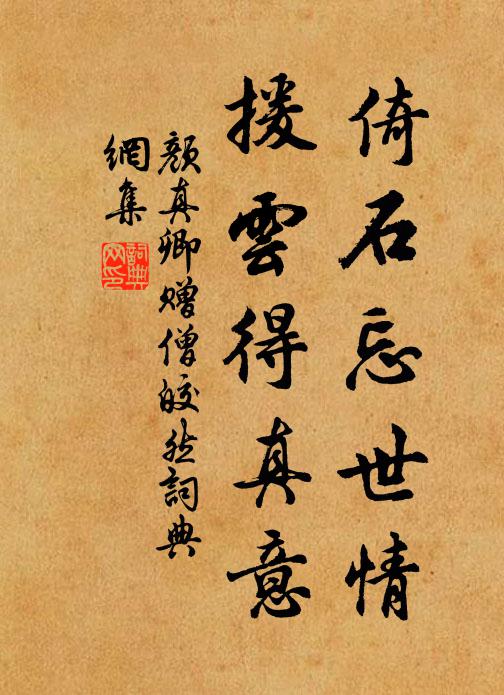 倚石忘世情
援雲得真意
颜真卿赠僧皎然詞典
網集
詞典
网印